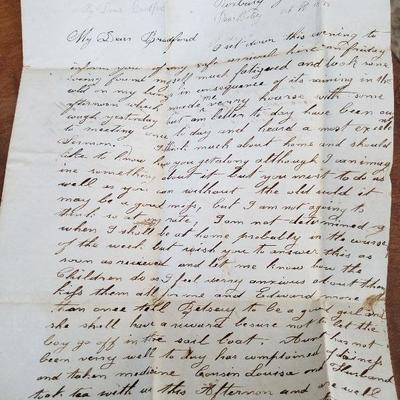 My Dear Bradford
I set down this evening to
inform you of my safe arrival here on Friday
evening found myself much fatigued and took some
cold in my lungs in consequence of its raining in the
afternoon which made me verry hoarse with some
cough yesterday but am better to day have been out
to meeting one to day and heard a most excelle
Sermon. I think much about home and should
like to know how you get along although I can imag
ine something about it but you must to do as
well as you can without the old
may be a good but I am not agoing to
think so at any rate, I am not determined
when I shall be at home probably in the course
of the week but wish you to answer this as
soon as received and let me know how the
Children do as I feel verry anxious about them
kiss them all for me and Edward more
than once tell Betsey to be a good girl and
she shall have a reward be sure not to let the
boy go off in the sail boat. Aunt has not
been verry well to day has complained of
and taken medicine Cousin Louisa and Husband
took tea with us this Afternoon and are well